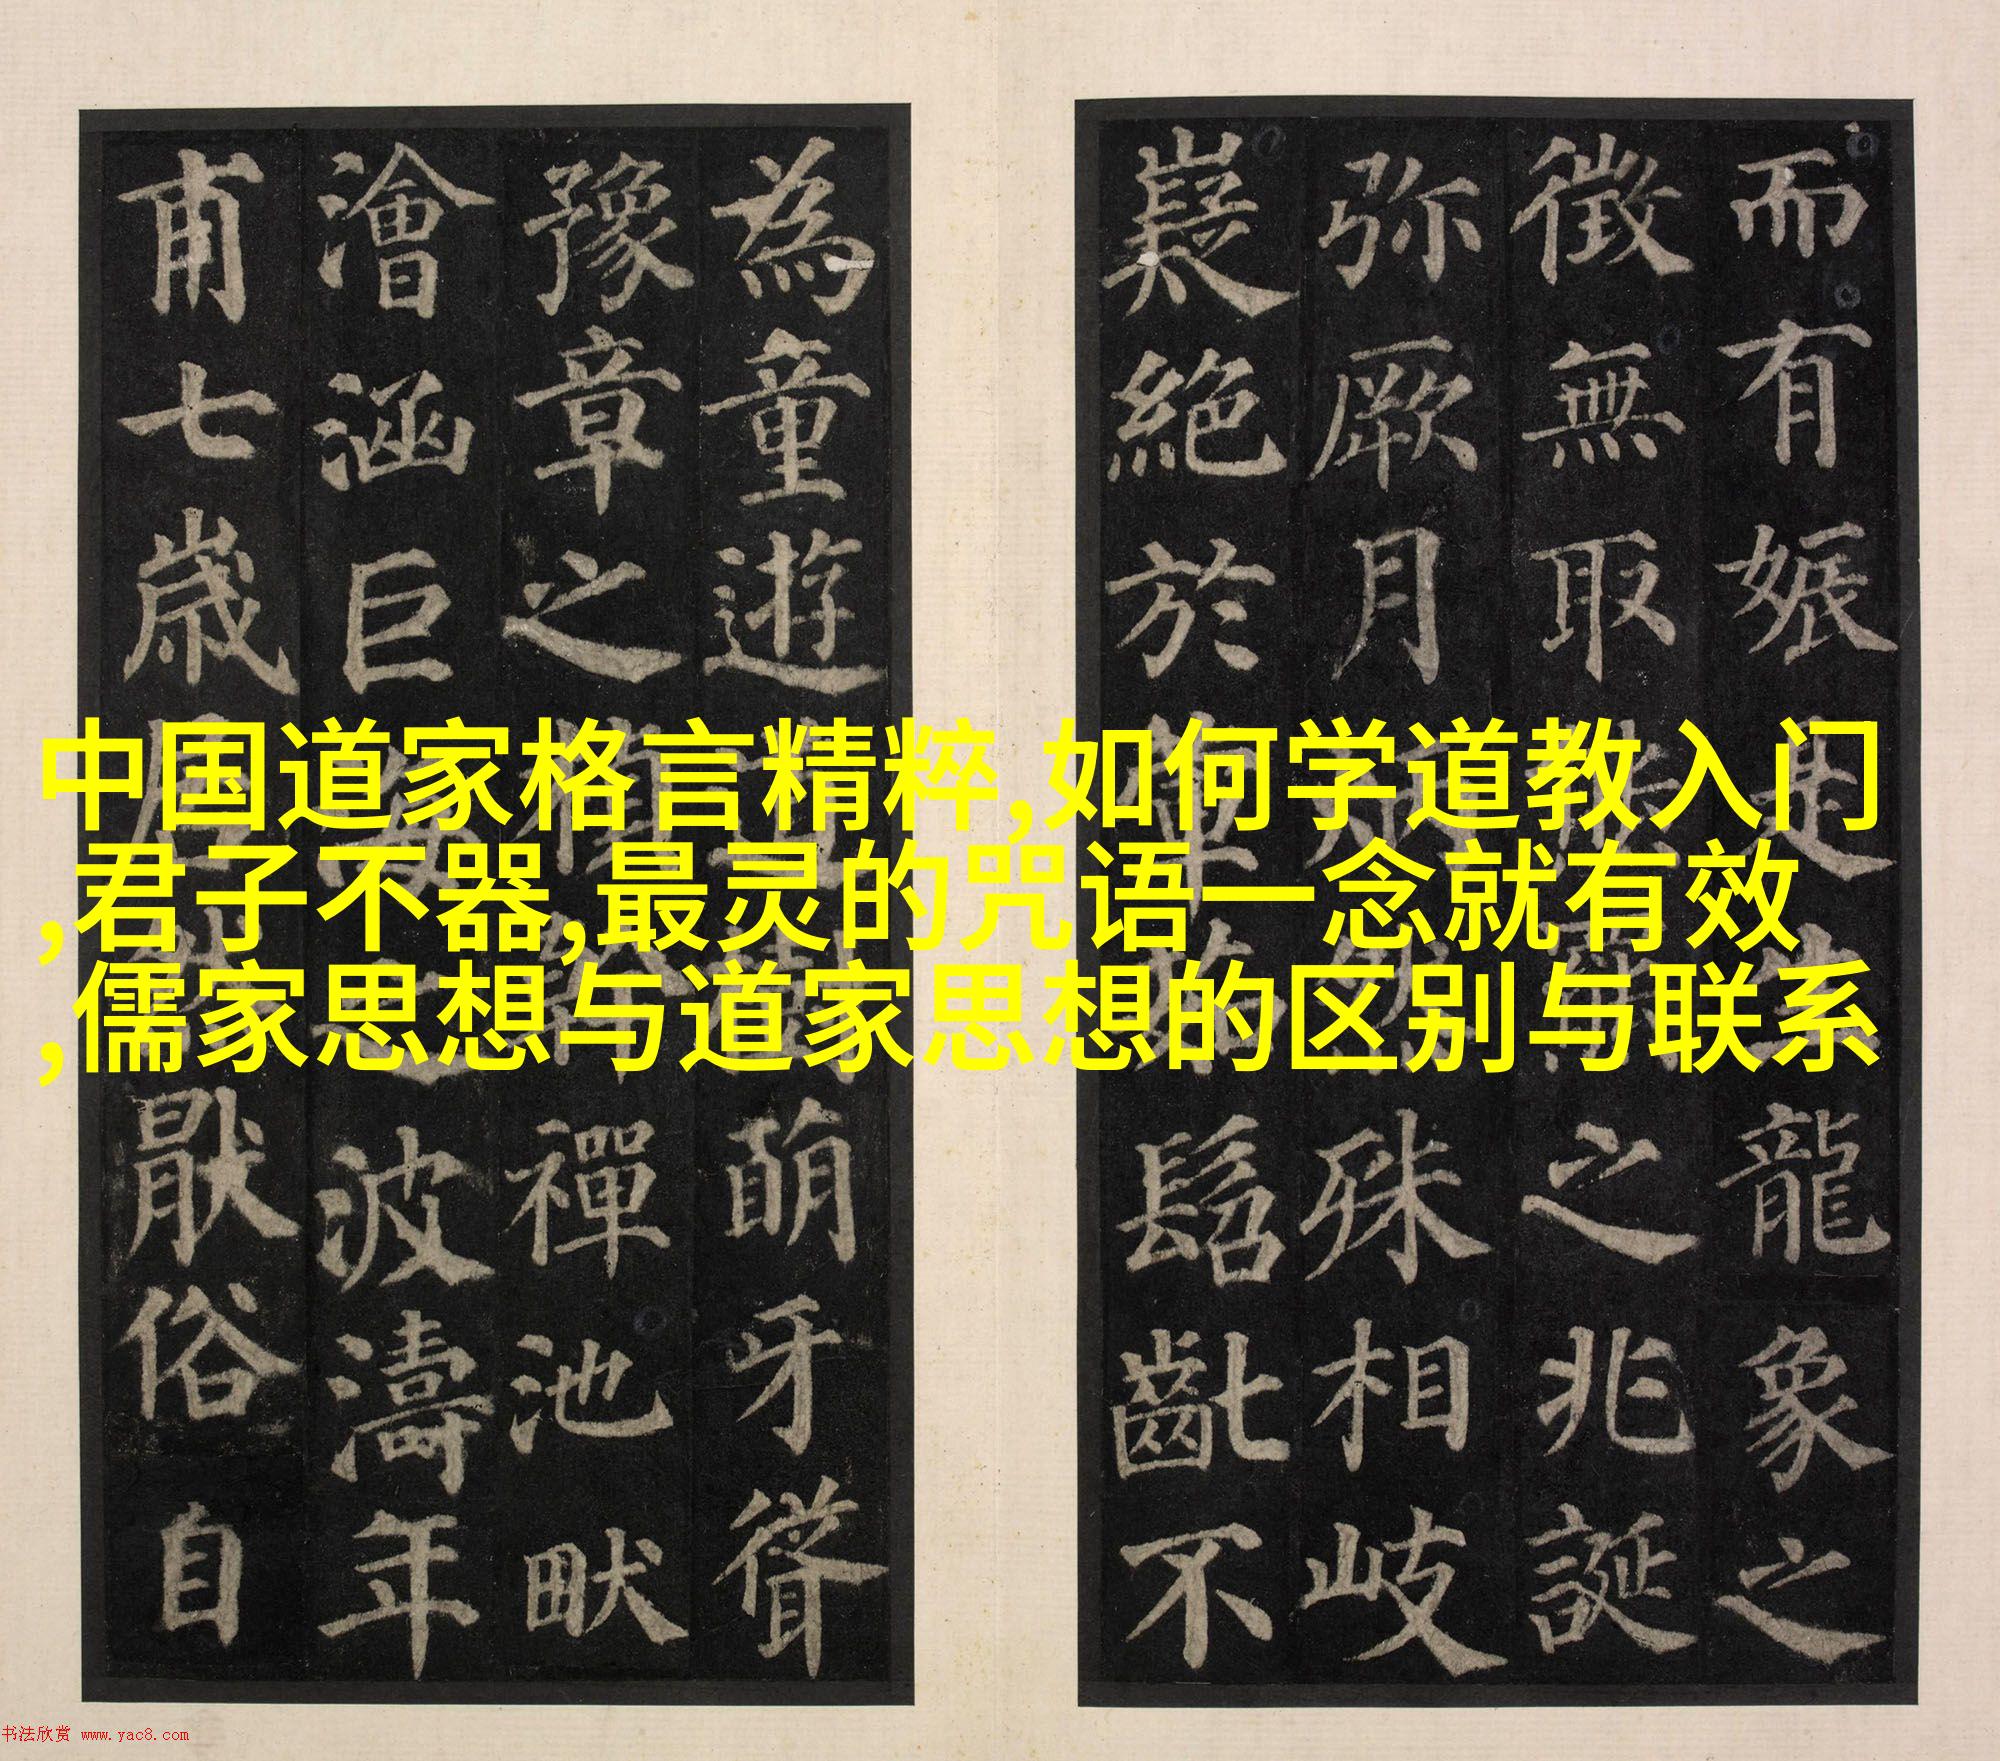 而有娠是龍象之
徵無取之兆誕
弥厥月殊相岐
嶷絕於髫齔不
為童遊萌牙聳
豫章之禪池畎
澮涵巨海之波濤年
甫七歲居猒俗自
中国道家格言精粹,如何学道教入门
,君子不器,最灵的咒语一念就有效
,儒家思想与道家思想的区别与联系
书法欣赏 www.yac8.com